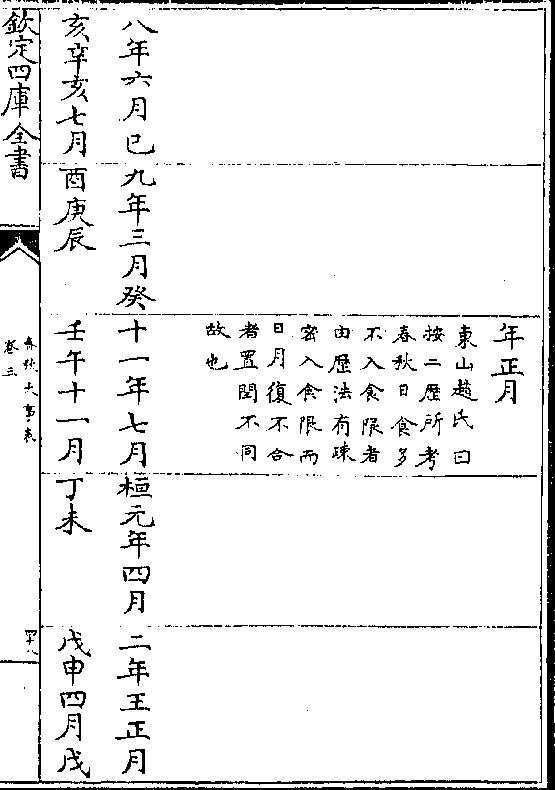 八年六月己
亥辛亥七月
九年三月癸
酉庚辰
年正月
東山趙氏曰
按二歷所考
春秋日食多
不入食限者
由歷法有疎
密入食限而
日月復不合
者置閏不同
故也
十一年七月
壬午十一月
桓元年四月
丁未
二年王正月
戊申四月戊
欽定四庫全書
春秋大事表
卷三